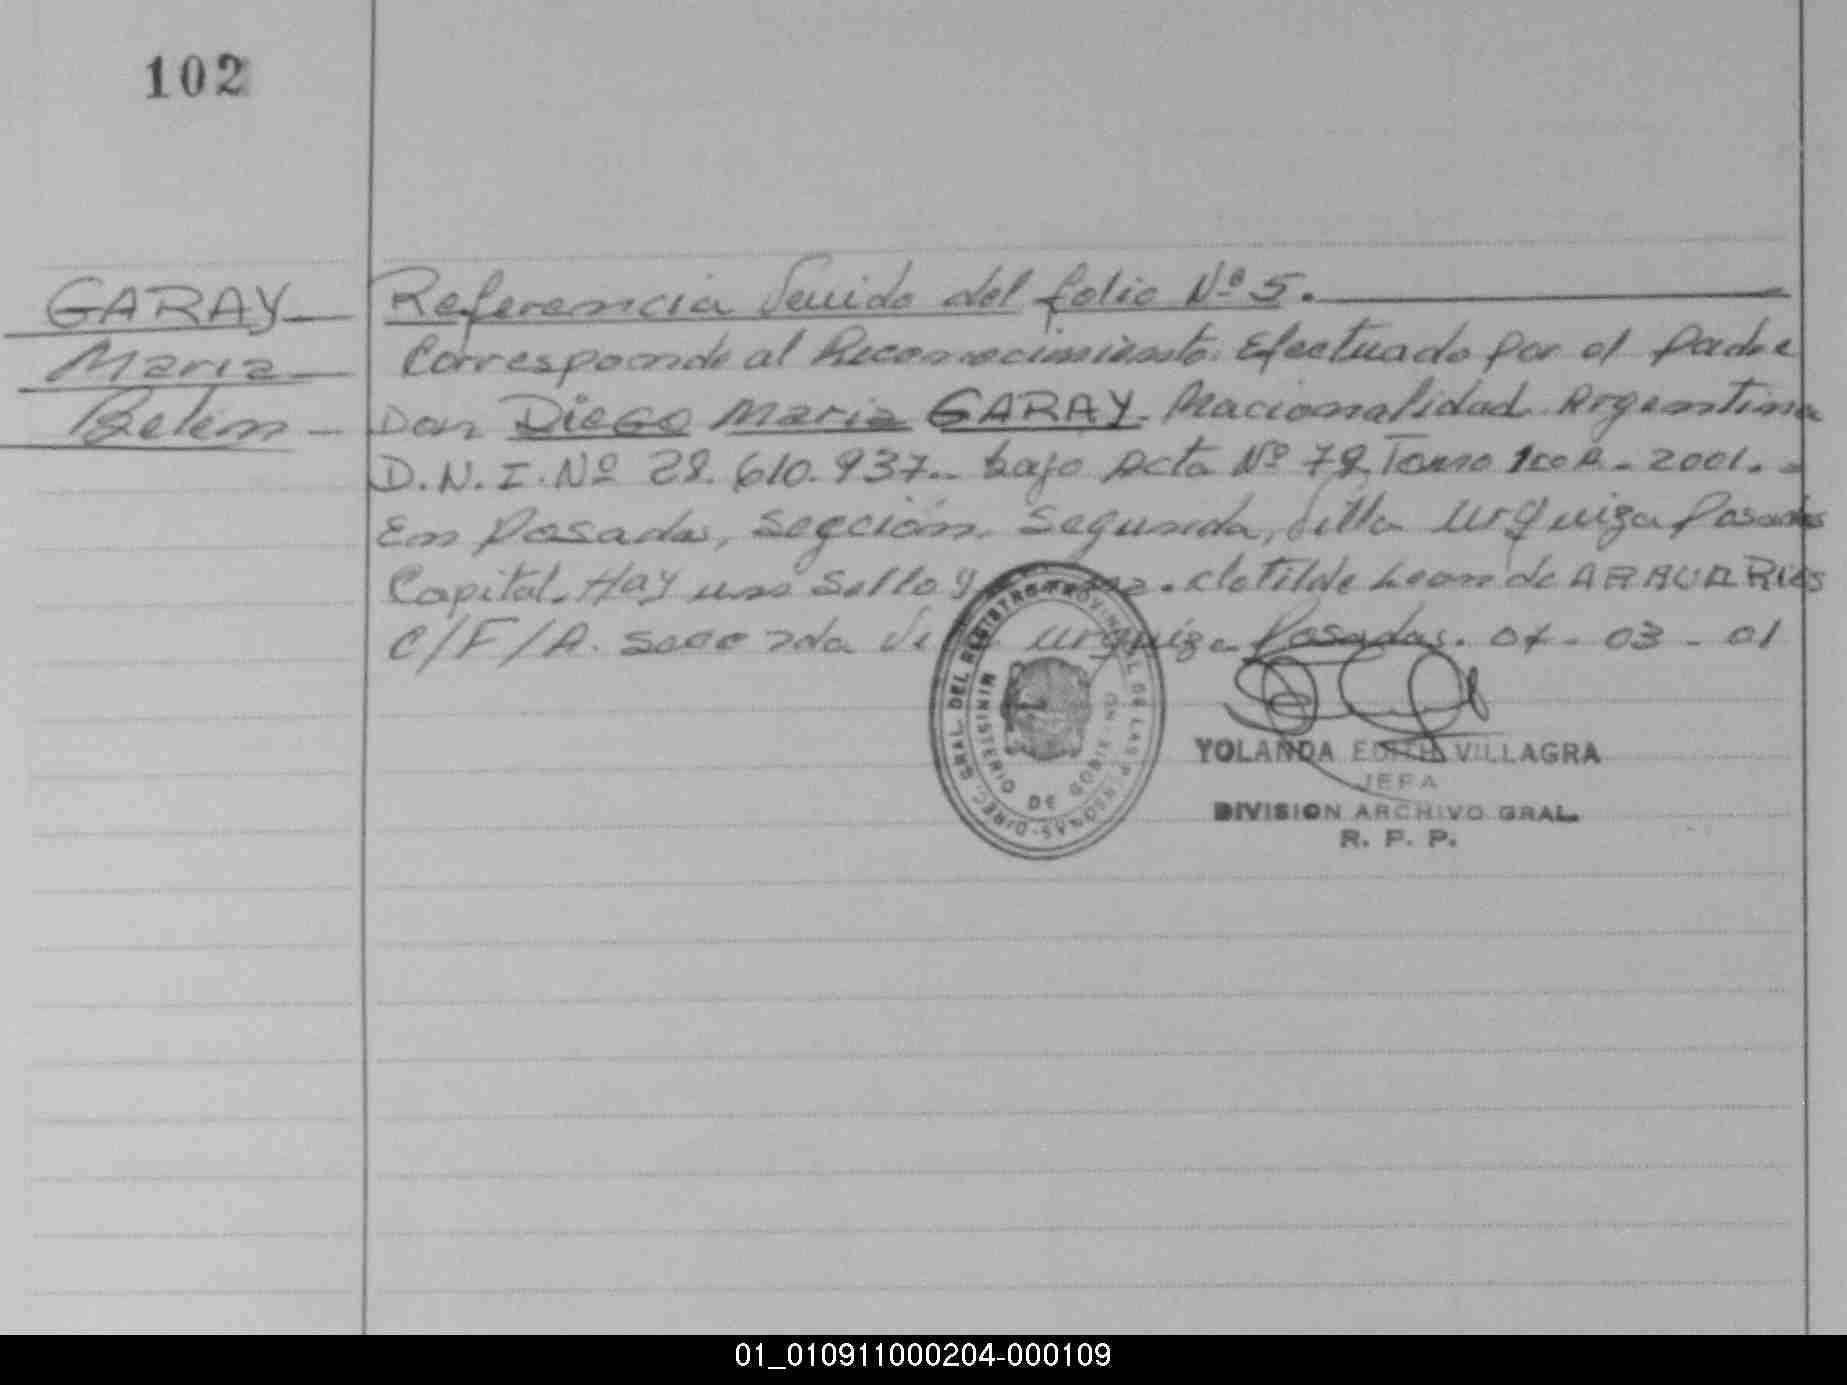 102
GARAY
Maria
Belém
Referencia Venido del folio Nº 5.
Corresponde al Reconocimiento. Efectuado por el padre
Don Diego Maria GARAY. Nacionalidad Argentina
D.N.I. Nº 28.610.937.- bajo Acta Nº 79 Tomo - 2001.-
En Posadas, Sección Segunda, Villa Urquiza Posadas
Capital. Hay un Sello y Clotilde Leon de
C/F/A. Urquiza Posadas. 07 - 03 - 01
DIREC. GRAL. DEL REGISTRO PROVINCIAL DE LAS PERSONAS
MINISTERIO DE GOBIERNO
YOLANDA EDITH VILLAGRA
JEFA
DIVISION ARCHIVO GRAL.
R. P. P.
01_010911000204-000109